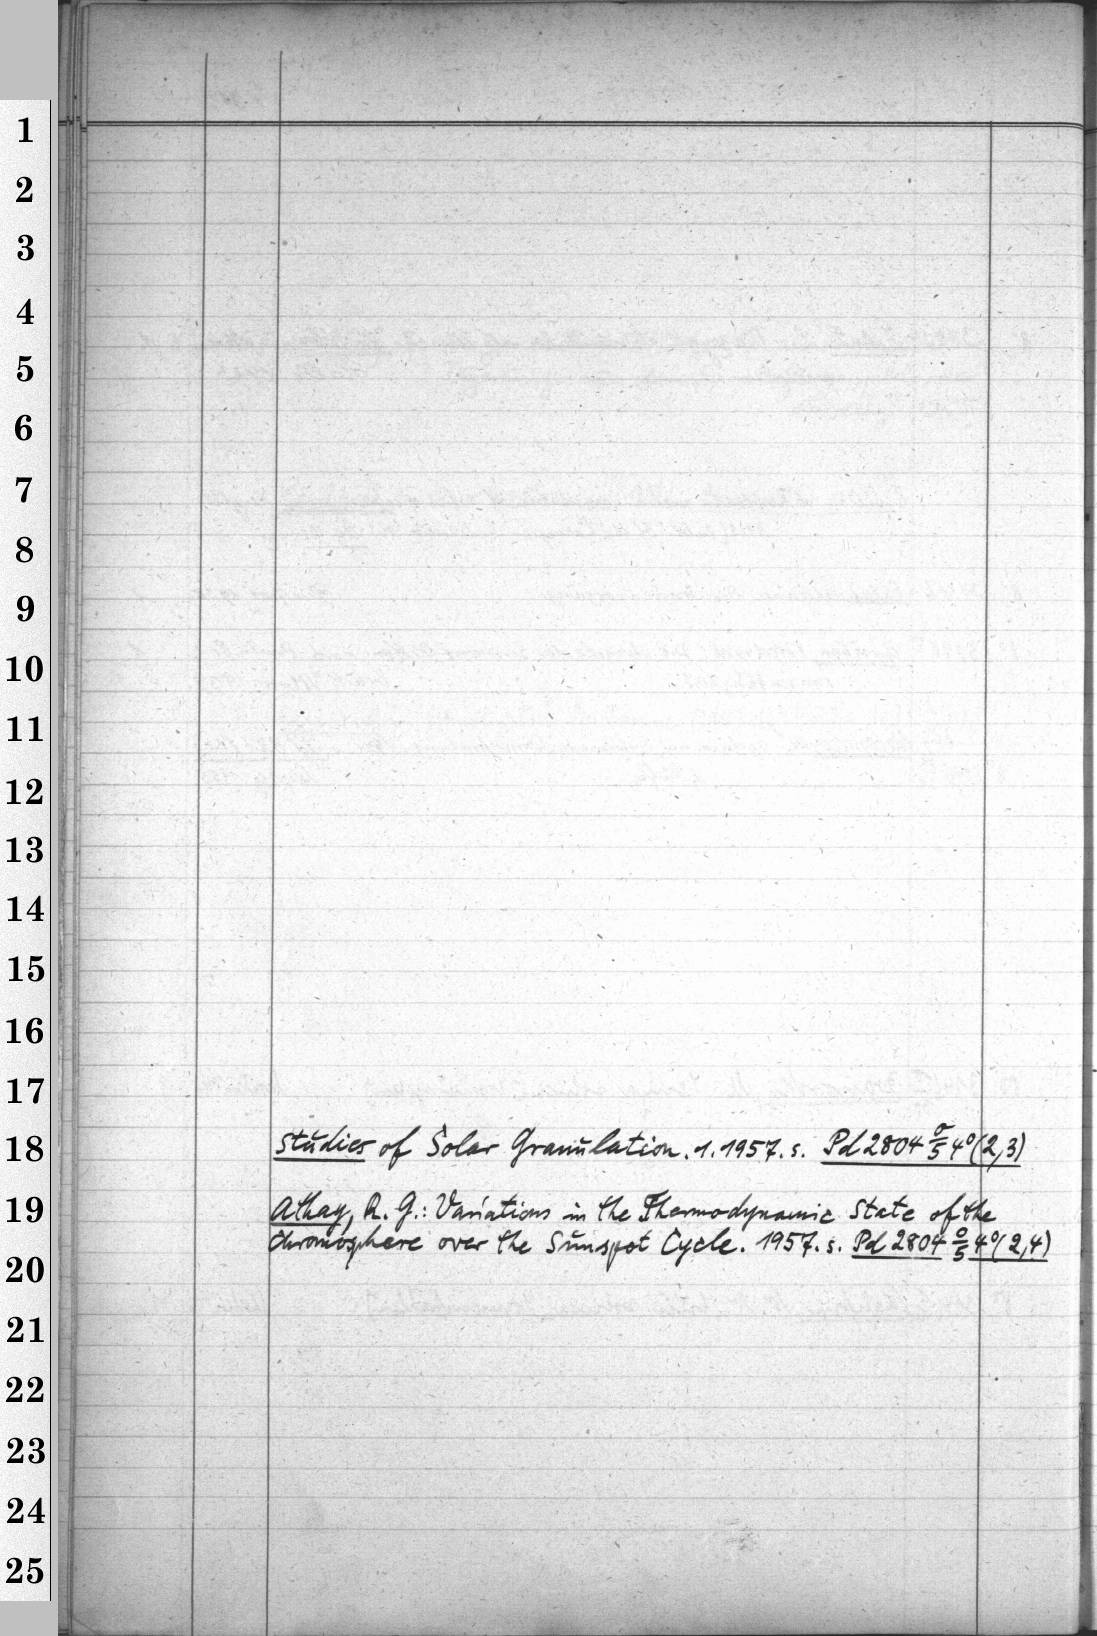 1
2
3
4
5
6
7
8
9
10
11
12
13
14
15
16
17
18
Studies of Solar Granulation. 1. 1957. s. Pd 2804 σ/5 4°(2,3)
19
Athay, R. G.: Variations in the Thermodynamic State of the
Chromosphere over the Sunspot Cycle. 1957. s. Pd 2804 σ/5 4°(2,4)
20
21
22
23
24
25